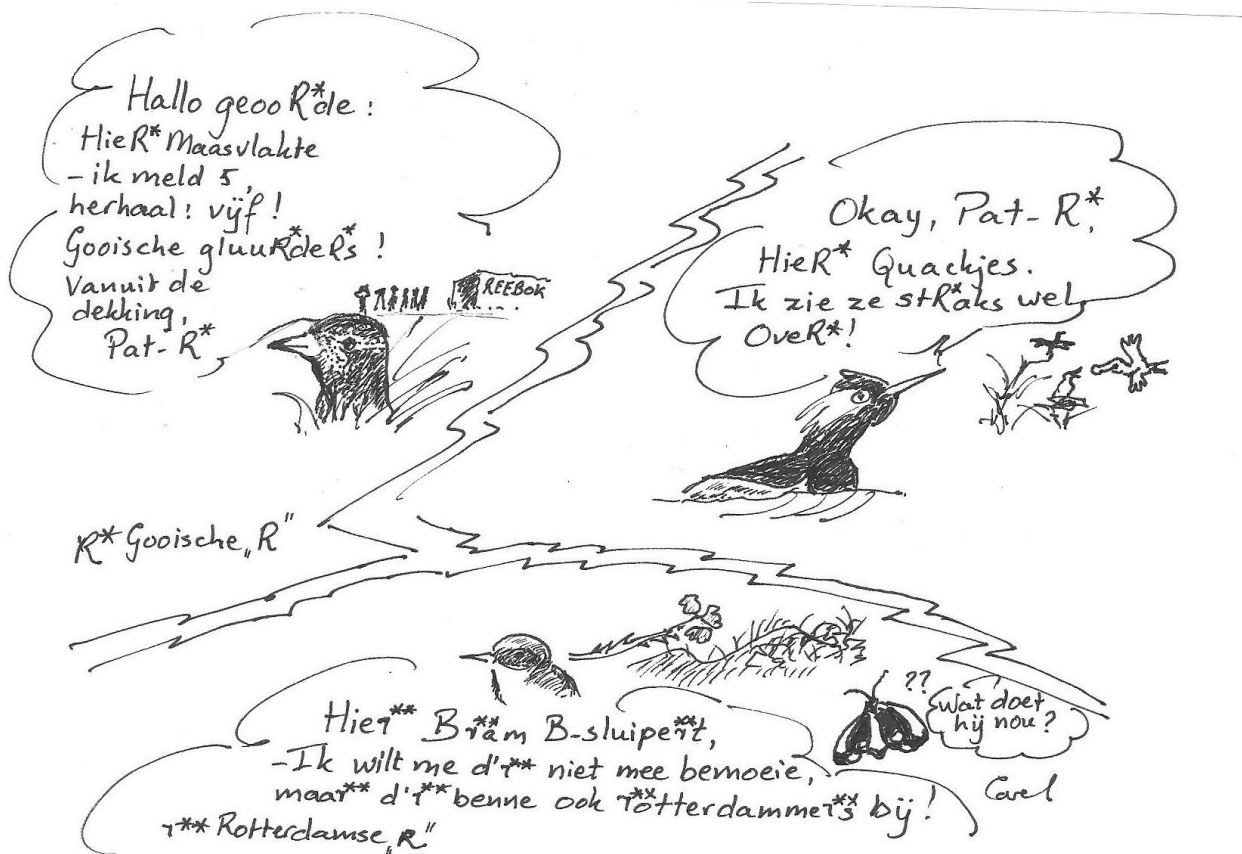 Hallo geooR*de:
HieR* Maasvlakte
- ik meld 5,
herhaal: vijf!
Gooische gluuR*deR*s!
Vanuit de
dekking,
Pat-R*
REEBOK
Okay, Pat-R*,
HieR* Quackjes.
Ik zie ze stR*aks wel,
OveR*!
R* Gooische „R"
Hier** Br**am B-sluiper**t,
- Ik wilt me d'r** niet mee bemoeie,
maar** d'r** benne ook r**otterdammer**s bij!
r** Rotterdamse „R"
??
Wat doet
hij nou?
Carel